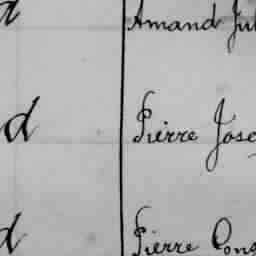 d Amand Jul
d Pierre Jose
d Pierre Cons